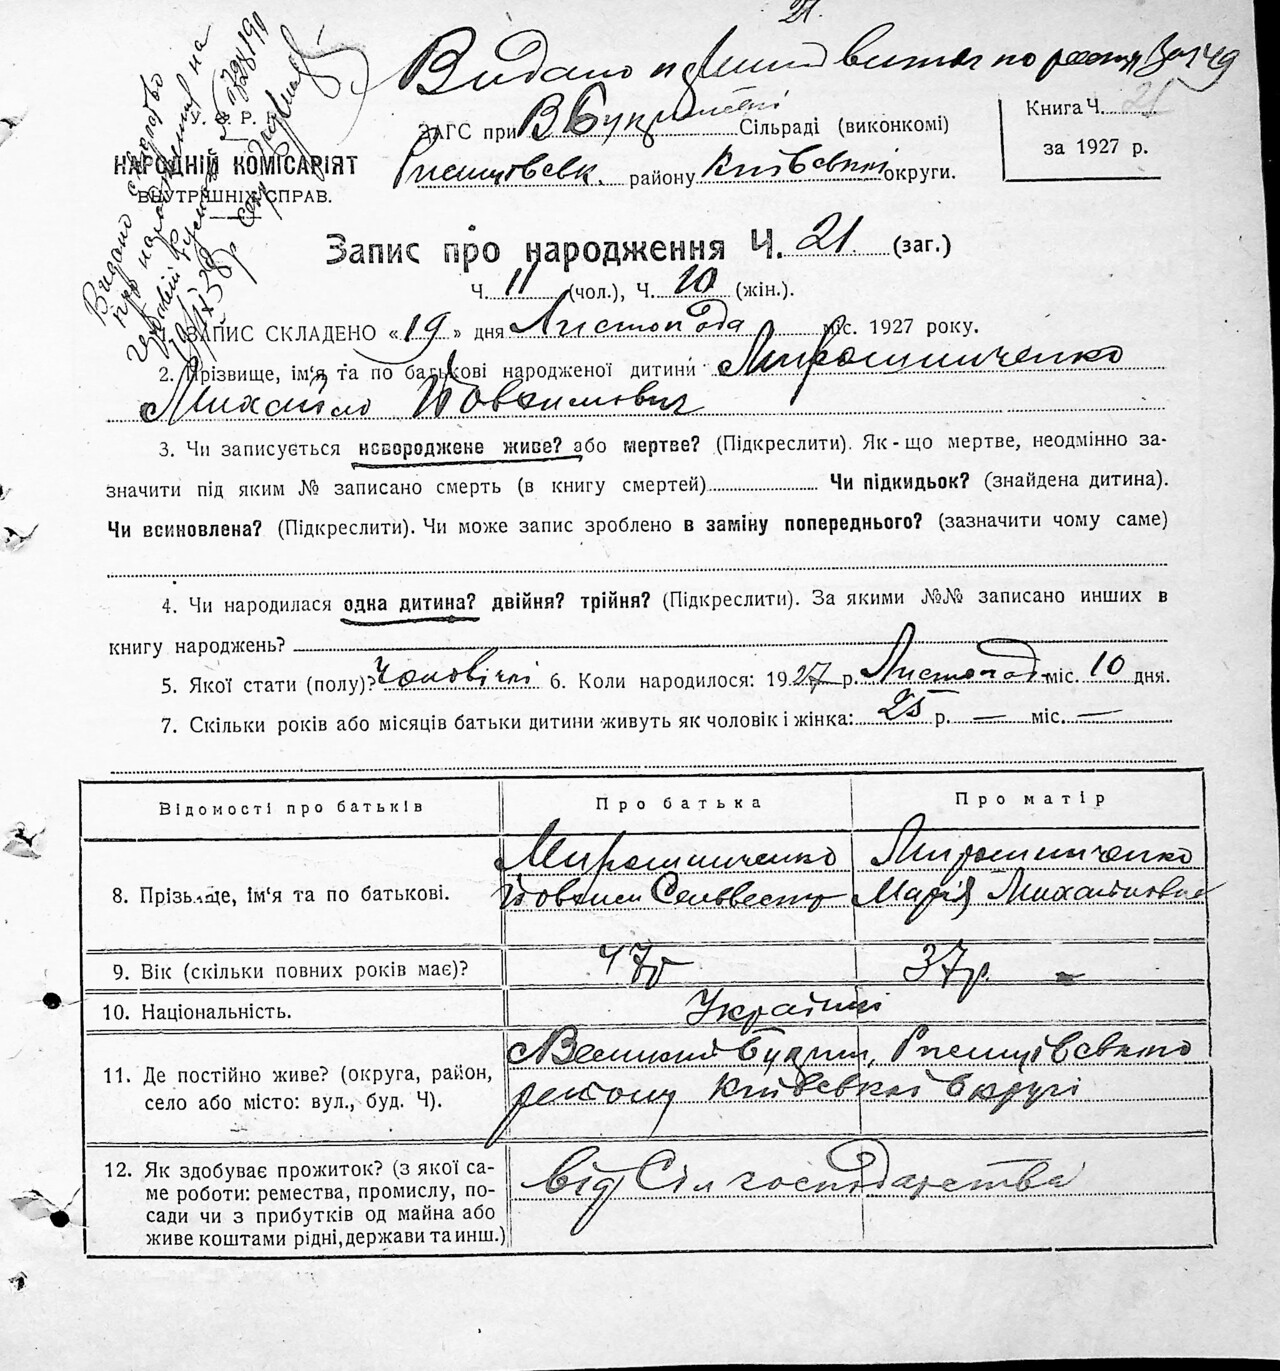 21.
Видано
Книга Ч. 21
ЗАГС при В Букринській Сільраді (виконкомі)
за 1927 р.
НАРОДНІЙ КОМІСАРІЯТ
Ржищівськ. району Київської округи.
ВНУТРІШНІХ СПРАВ.
Запис про народження Ч. 21 (заг.)
Ч. 11 (чол.), Ч. 10 (жін.).
ЗАПИС СКЛАДЕНО «19» дня Листопода міс. 1927 року.
2. Прізвище, ім'я та по батькові народженої дитини Мирошниченко
Михайло Йовхимович
3. Чи записується новороджене живе? або мертве? (Підкреслити). Як-що мертве, неодмінно за-
значити під яким № записано смерть (в книгу смертей) Чи підкидьок? (знайдена дитина).
Чи всиновлена? (Підкреслити). Чи може запис зроблено в заміну попереднього? (зазначити чому саме)
4. Чи народилася одна дитина? двійня? трійня? (Підкреслити). За якими №№ записано инших в
книгу народжень?
5. Якої стати (полу)? Чоловічої 6. Коли народилося: 1927 р. Листопод міс. 10 дня.
7. Скільки років або місяців батьки дитини живуть як чоловік і жінка: 25 р. — міс. —
Відомості про батьків Про батька Про матір
Мирошниченко Мирошниченко
8. Прізвище, ім'я та по батькові. Йовхим Сельвестр Марія Михайловна
9. Вік (скільки повних років має)? 47р 37р.
10. Національність. Українці
Великий Букрин, Ржищівського
11. Де постійно живе? (округа, район,
село або місто: вул., буд. Ч). району Київської Округі
12. Як здобуває прожиток? (з якої са-
ме роботи: ремества, промислу, по-
сади чи з прибутків од майна або
живе коштами рідні, держави та инш.)
від Сілгосподарства